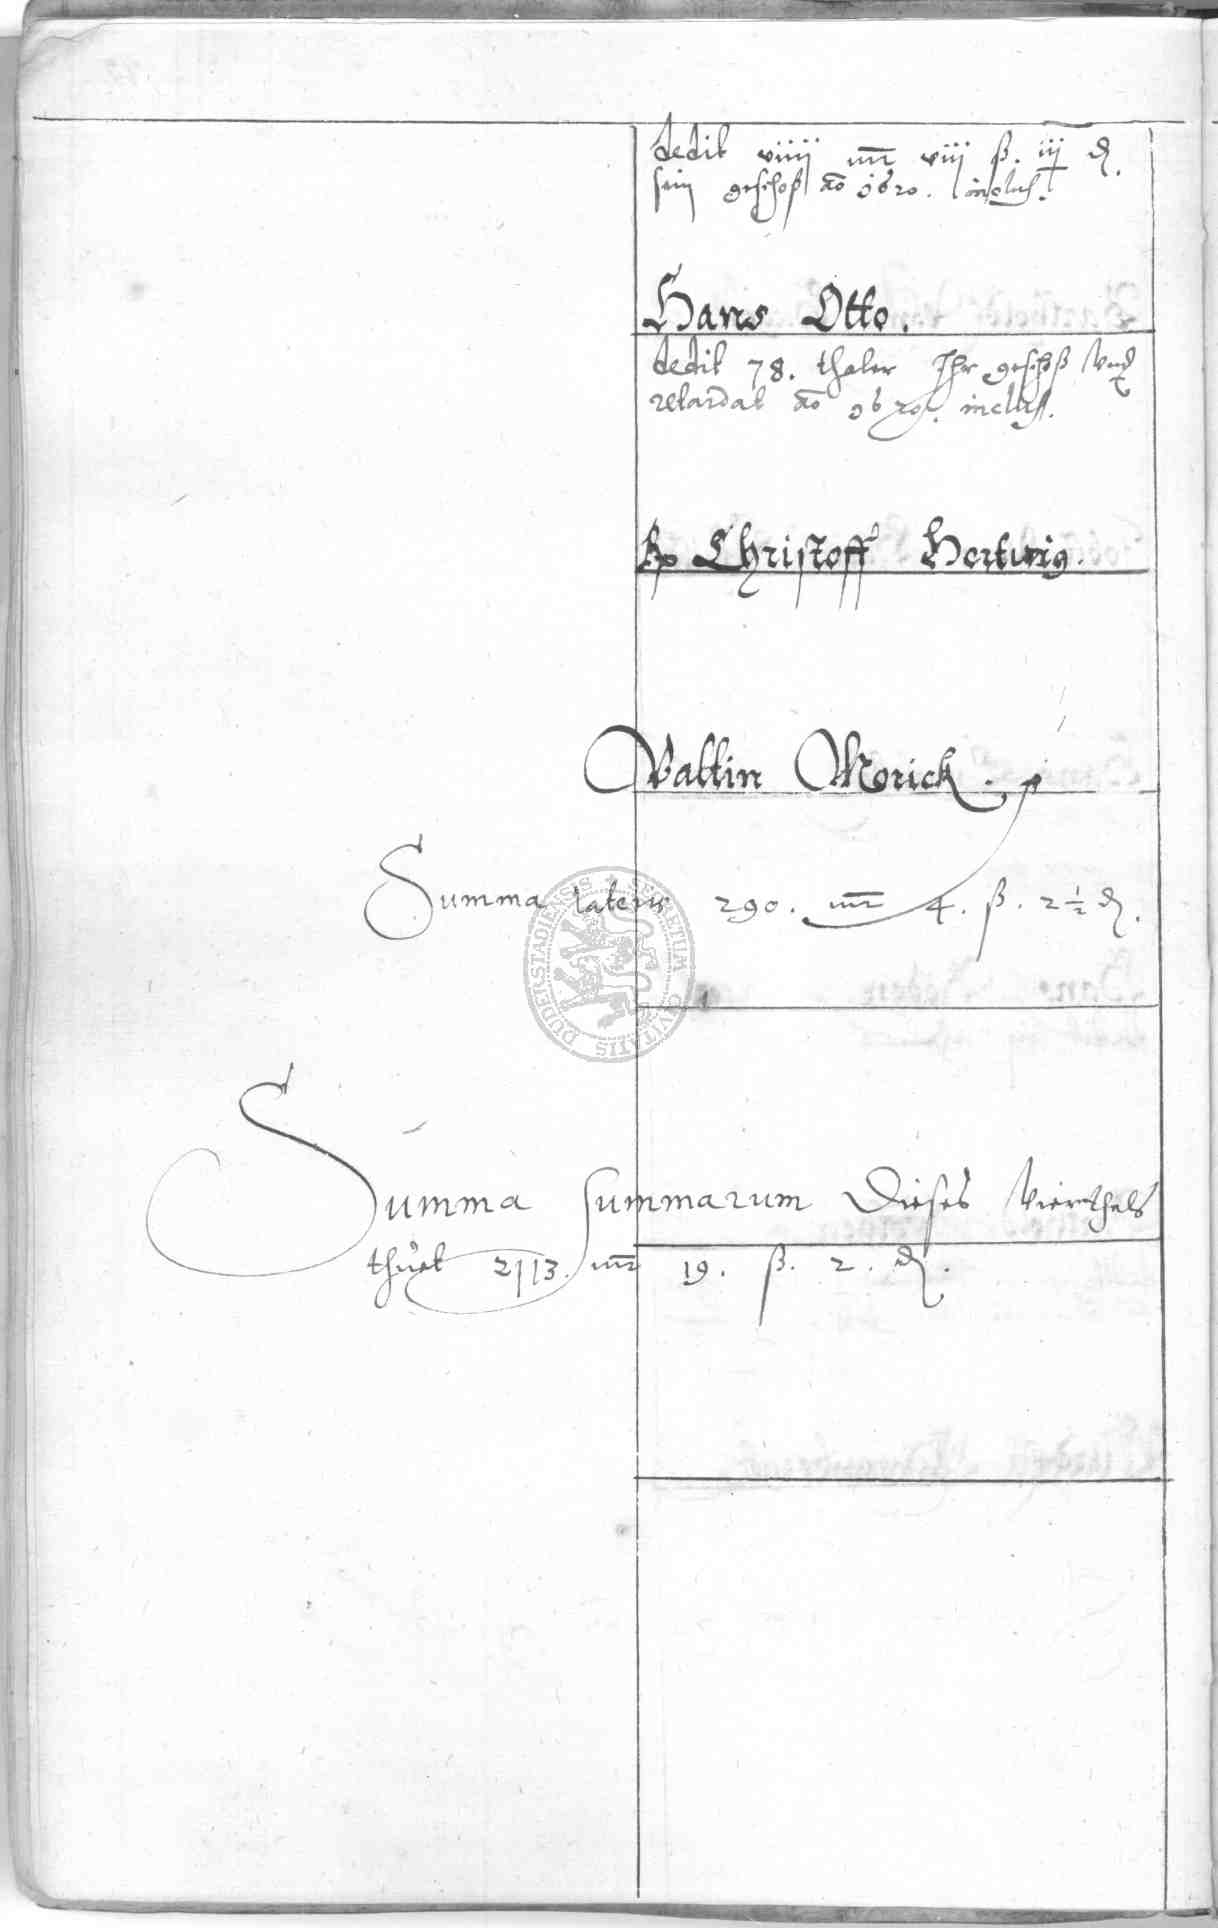 dedit viiij mr viij ß. iij ₰.
sein geschoß ao 1620. inclus.
Hans Otto.
dedit 78. thaler Ihr geschoß Vnd
retardat ao 1620. inclus.
Christoff Hertwig.
Valtin Morick.
Summa lateris 290. mr 4. ß. 2 ½ ₰.
SECRETUM CIVITATIS DUDERSTADIENSIS
Summa summarum Dieses Vierthels
thuet 2113. mr 19. ß. 2. ₰.